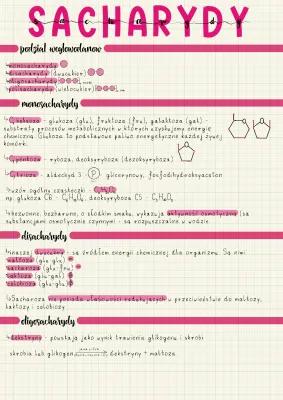 SACHARYDY
podział węglowodanów
monosacharydy
disacharydy (dwucukier)
oligosacharydy
polisacharydy (wielocukier)
monosacharydy
heksoza - glukoza (glu), fruktoza (fru), galaktoza (gal) -
substraty procesów metabolicznych w których uzyskujemy energię
chemiczną. Glukoza to podstawowe paliwo energetyczne każdej żywej
komórki.
pentoza - ryboza, deoksyryboza (dezoksyryboza)
trioza - aldehyd 3 - P glicerynowy, fosfodihydroksyaceton
wzór ogólny cząsteczki -
np. glukoza C6 - C₆H₁₂O₆, deoksyryboza C5 -
bezwonne, bezbarwne, o słodkim smaku, wykazują aktywność osmotyczną (są
substancjami osmotycznie czynnymi) - są rozpuszczalne w wodzie
disacharydy
inaczej dwucukry - są źródłem energii chemicznej dla organizmu. Są nimi
maltoza (glu-glu)
sacharoza (glu-fru)
laktoza (glu-gal)
celobioza (glu-glu)
Sacharoza nie posiada właściwości redukujących w przeciwieństwie do maltozy,
laktozy i celobiozy
oligosacharydy
dekstryny - powstają jako wynik trawienia glikogenu i skrobi
skrobia lub glikogen dekstryny + maltoza